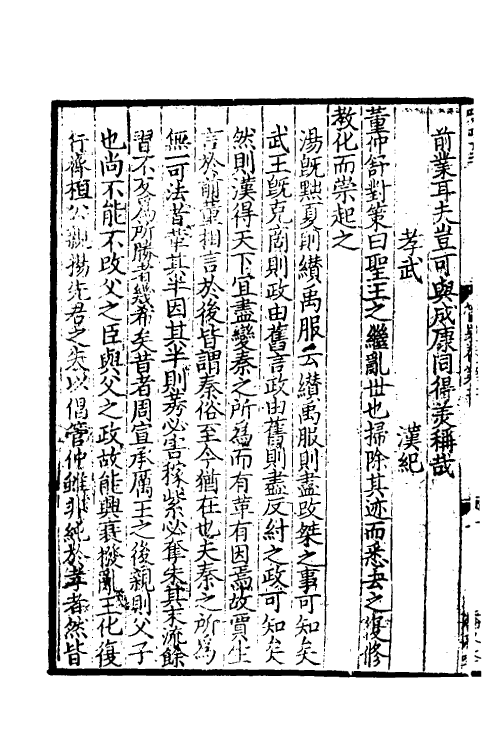 前業耳夫豈可與成康同得美稱哉
孝武　漢紀
董仲舒對策曰聖王之繼亂世也掃除其迹而悉去之復修
教化而崇起之
湯既黜夏則纉禹服云纉禹服則盡改桀之事可知矣
武王既克商則政由舊言政由舊則盡反紂之政可知矣
然則漢得天下宜盡變秦之所為而有革有因焉故賈生
言於前董相言於後皆謂秦俗至今猶在也夫秦之所為
無一可法者革其半因其半則莠必害稼紫必奪朱其末流餘
習不反為所勝者幾希矣昔者周宣承厲王之後親則父子
也尚不能不改父之臣與父之政故能興衰撥亂王化復
行齊桓公觀揚先君之失以倡管仲雖非純於者然皆